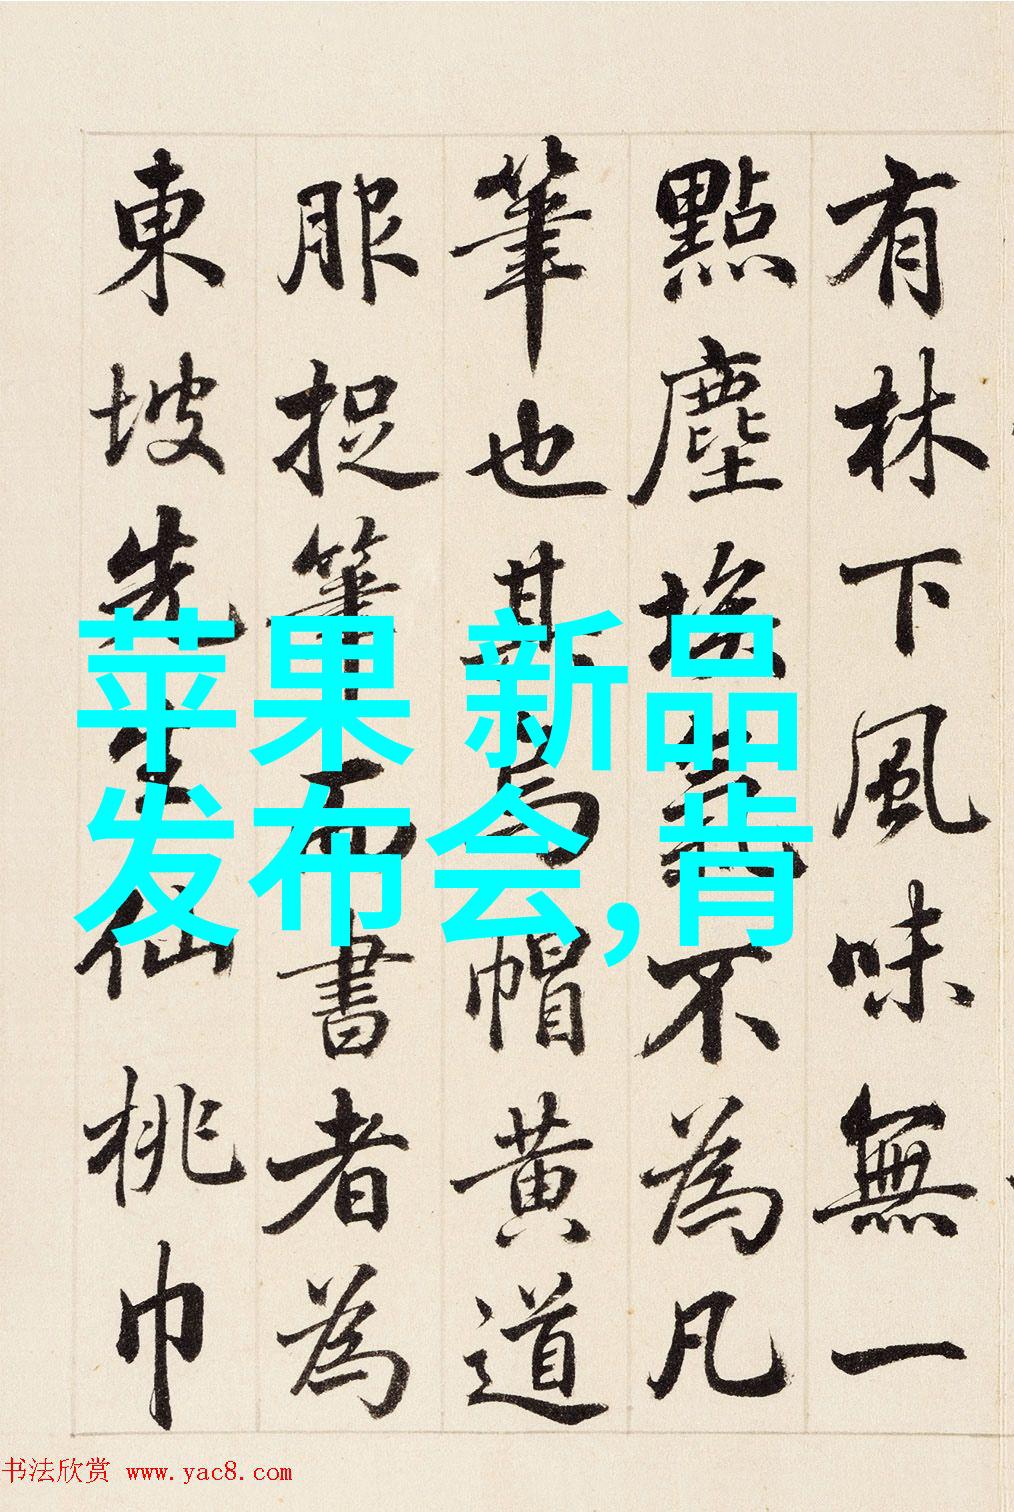 有林下風味無一
點塵埃氣不為凡
筆也其烏帽黄道
服捉筆而書者為
東坡先生仙桃巾
苹果 新品
发布会,肯
书法欣赏 www.yac8.com